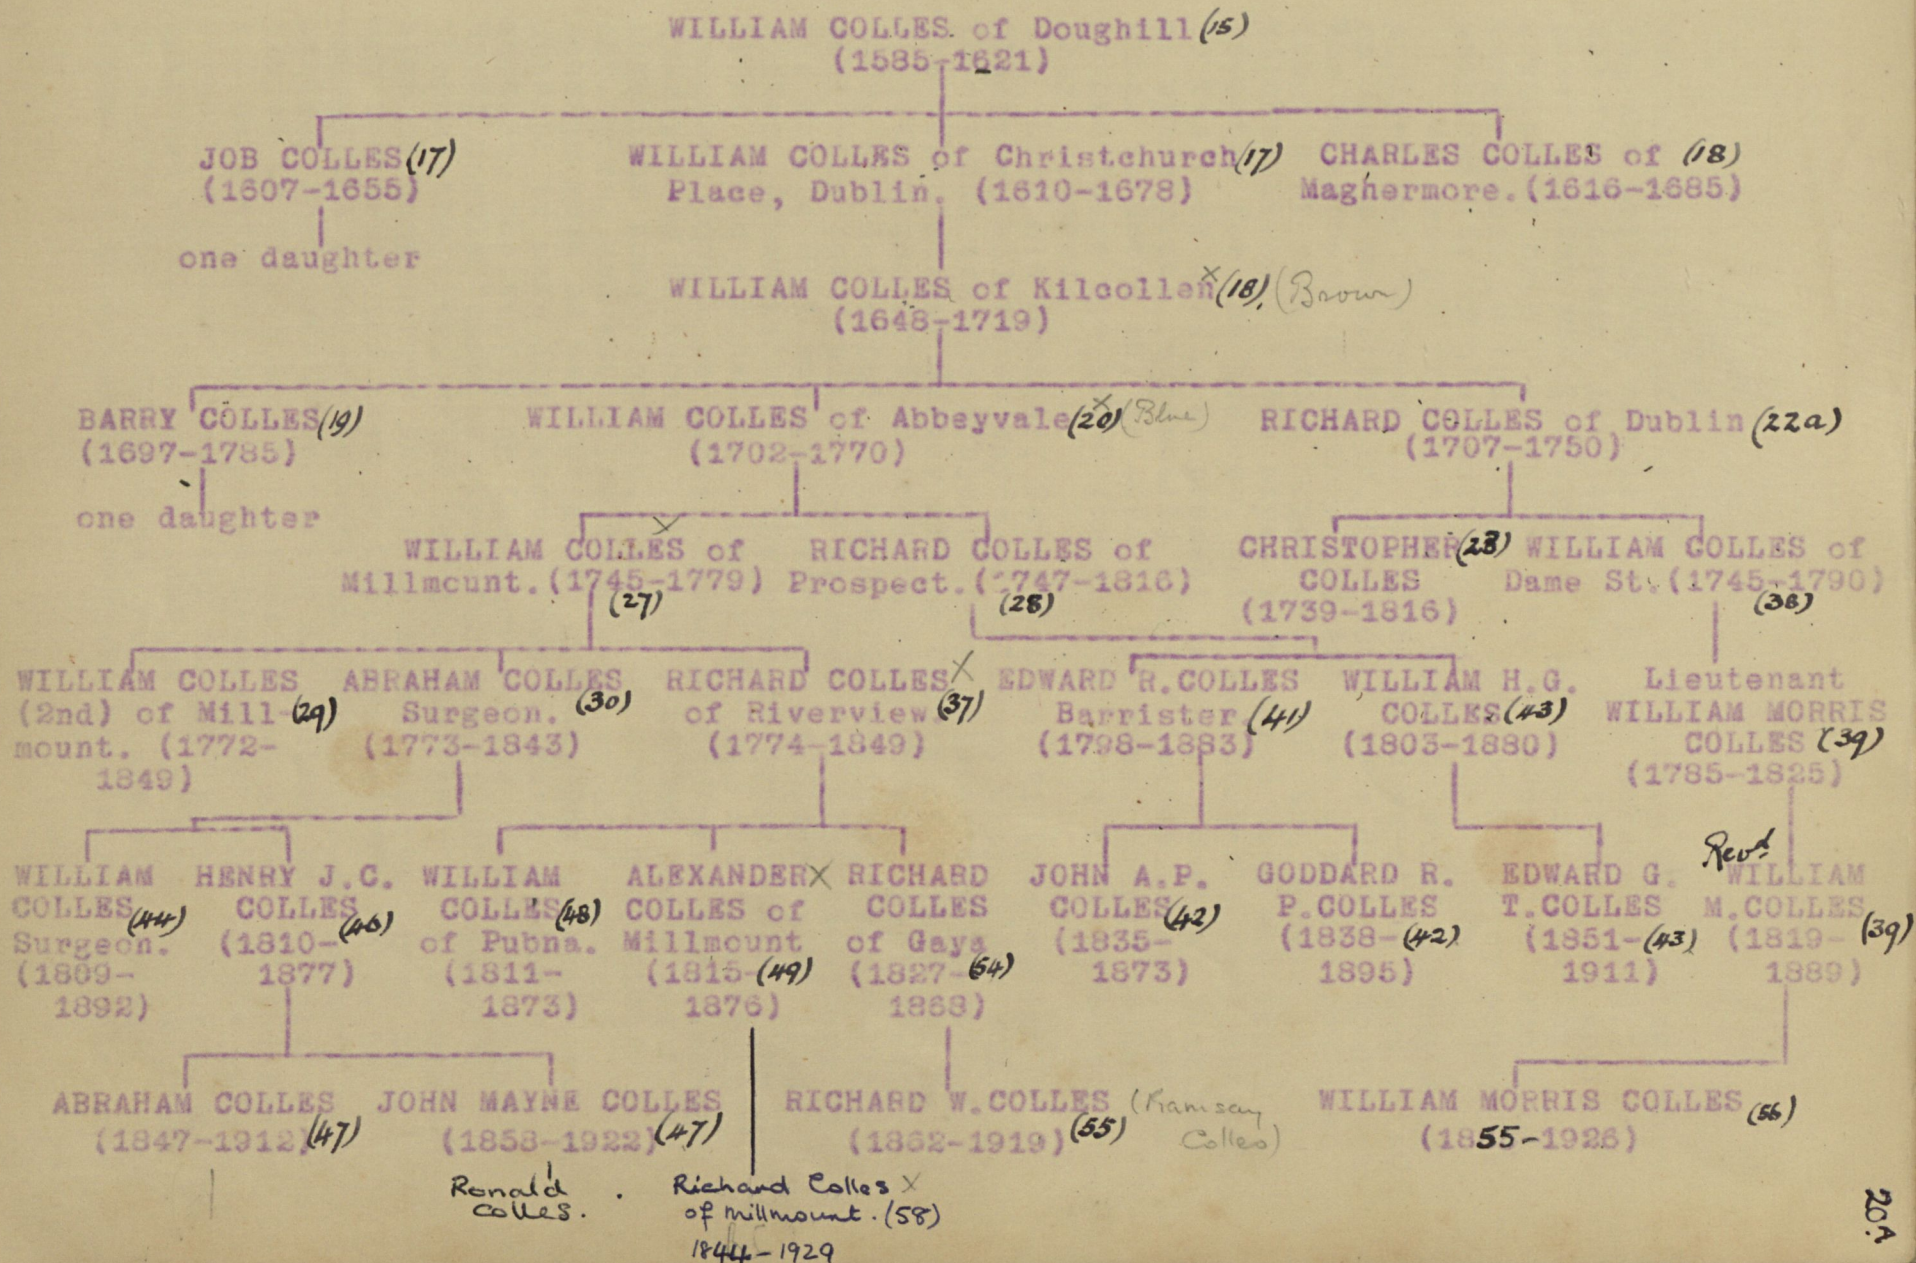 WILLIAM COLLES. of Doughill (15)
(1585-1621)
JOB COLLES (17)
(1607-1655)
one daughter
WILLIAM COLLES of Christchurch (17)
Place, Dublin. (1610-1678)
CHARLES COLLES of (18)
Maghermore. (1616-1685)
WILLIAM COLLES of Kilcollen X (18). (Brown)
(1648-1719)
BARRY COLLES (19)
(1697-1785)
one daughter
WILLIAM COLLES of Abbeyvale X (20) (Blue)
(1702-1770)
RICHARD COLLES of Dublin (22a)
(1707-1750)
X
WILLIAM COLLES of
Millmount. (1745-1779)
(27)
RICHARD COLLES of
Prospect. (1747-1816)
(28)
CHRISTOPHER (23)
COLLES
(1739-1816)
WILLIAM COLLES of
Dame St. (1745-1790)
(38)
WILLIAM COLLES
(2nd) of Mill- (29)
mount. (1772-
1849)
ABRAHAM COLLES
Surgeon. (30)
(1773-1843)
RICHARD COLLES X
of Riverview. (37)
(1774-1849)
EDWARD R.COLLES
Barrister. (41)
(1798-1883)
WILLIAM H.G.
COLLES. (43)
(1803-1880)
Lieutenant
WILLIAM MORRIS
COLLES (39)
(1785-1825)
WILLIAM
COLLES (44)
Surgeon.
(1809-
1892)
HENRY J.C.
COLLES
(1810- (46)
1877)
WILLIAM
COLLES (48)
of Pubna.
(1811-
1873)
ALEXANDER X
COLLES of
Millmount
(1815- (49)
1876)
RICHARD
COLLES
of Gaya
(1827- (54)
1868)
JOHN A.P.
COLLES (42)
(1835-
1873)
GODDARD R.
P.COLLES
(1838- (42)
1895)
EDWARD G.
T.COLLES
(1851- (43)
1911)
Revd
WILLIAM
M.COLLES
(1819- (39)
1889)
ABRAHAM COLLES
(1847-1912) (47)
JOHN MAYNE COLLES
(1858-1922) (47)
Ronald
Colles.
Richard Colles X
of Millmount. (58)
1844-1929
RICHARD W.COLLES (Ramsay
(1862-1919) (55) Colles)
WILLIAM MORRIS COLLES (56)
(1855-1926)
20A